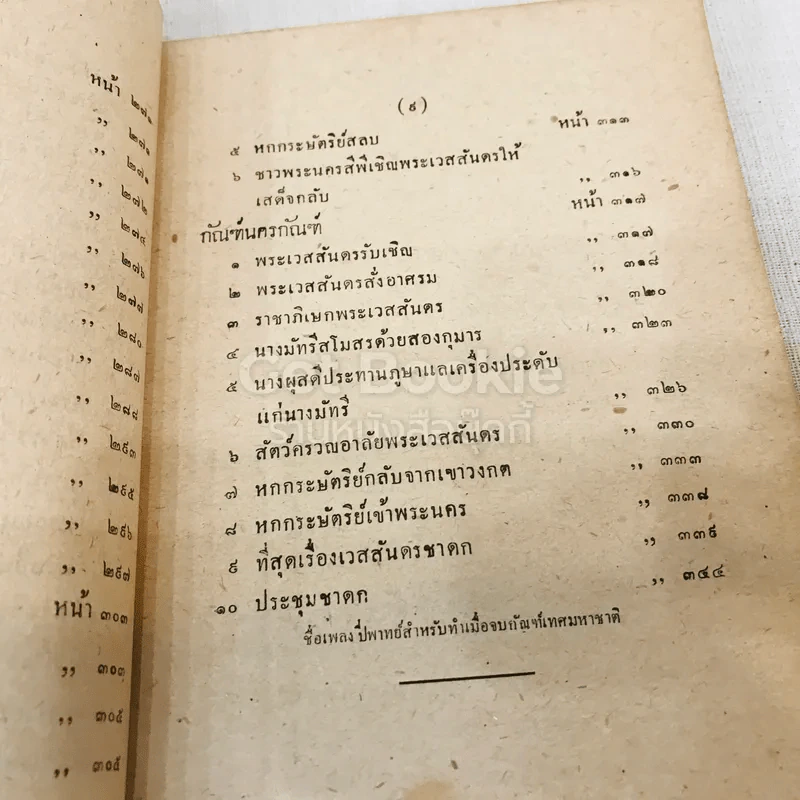 หน้า ๒๗๑
,, ๒๗๑
,, ๒๗๑
,, ๒๗๒
,, ๒๗๔
,, ๒๗๖
,, ๒๗๗
,, ๒๘๐
,, ๒๘๗
,, ๒๘๘
,, ๒๙๓
,, ๒๙๕
,, ๒๙๖
,, ๒๙๗
หน้า ๓๐๓
,, ๓๐๓
,, ๓๐๕
,, ๓๐๕
(๙)
๕ หกกระษัตริย์สลบ หน้า ๓๑๓
๖ ชาวพระนครสีพีเชิญพระเวสสันดรให้
เสด็จกลับ ,, ๓๑๖
กัณฑ์นครกัณฑ์ หน้า ๓๑๗
๑ พระเวสสันดรรับเชิญ ,, ๓๑๗
๒ พระเวสสันดรสั่งอาศรม ,, ๓๑๘
๓ ราชาภิเษกพระเวสสันดร ,, ๓๒๐
๔ นางมัทรีสโมสรด้วยสองกุมาร ,, ๓๒๓
๕ นางผุสดีประทานภูษาแลเครื่องประดับ
แก่นางมัทรี ,, ๓๒๖
๖ สัตว์ครวญอาลัยพระเวสสันดร ,, ๓๓๐
๗ หกกระษัตริย์กลับจากเขาวงกต ,, ๓๓๓
๘ หกกระษัตริย์เข้าพระนคร ,, ๓๓๘
๙ ที่สุดเรื่องเวสสันดรชาดก ,, ๓๓๙
๑๐ ประชุมชาดก ,, ๓๔๔
ชื่อเพลงปี่พาทย์สำหรับทำเมื่อจบกัณฑ์เทศมหาชาติ
Got Bookie
ร้านหนังสือกุ๊ตกี้